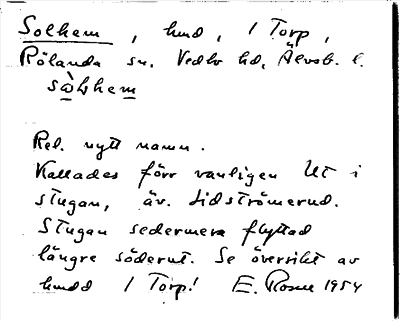 Solhem, hmd, 1 Torp,
Rölanda sn. Vedbo hd, Älvsb. l.
Rel. nytt namn.
Kallades förr vanligen Ut i
stugan, äv. Lidströmerud.
Stugan sedermera flyttad
längre söderut. Se översikt av
hmdd 1 Torp! E. Rosell 1954